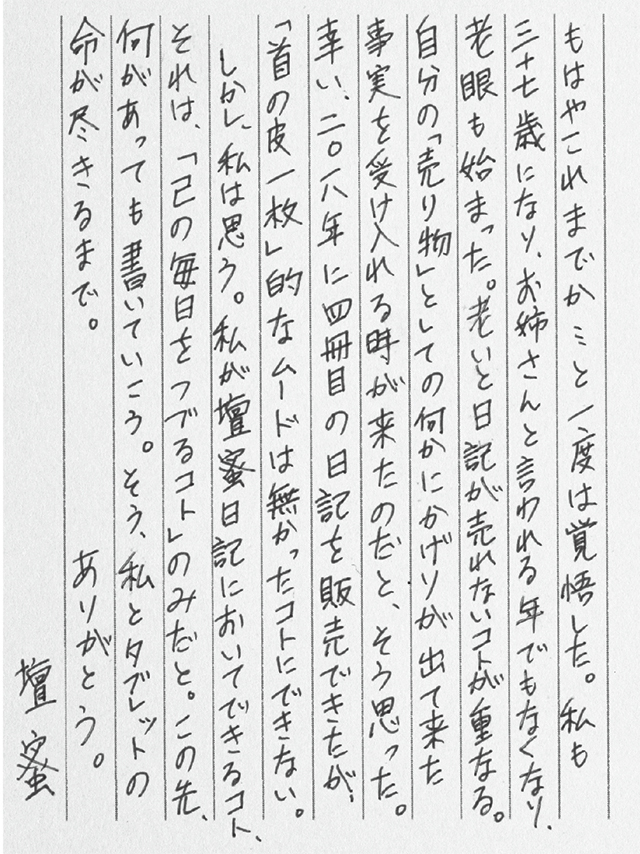 もはやこれまでか…と一度は覚悟した。私も
三十七歳になり、お姉さんと言われる年でもなくなり、
老眼も始まった。老いと日記が売れないコトが重なる。
自分の「売り物」としての何かにかげりが出て来た
事実を受け入れる時が来たのだと、そう思った。
幸い、二〇一八年に四冊目の日記を販売できたが、
「首の皮一枚」的なムードは無かったコトにできない。
しかし、私は思う。私が壇蜜日記においてできるコト、
それは、「己の毎日をつづるコト」のみだと。この先、
何があっても書いていこう。そう、私とタブレットの
命が尽きるまで。　ありがとう。
壇蜜